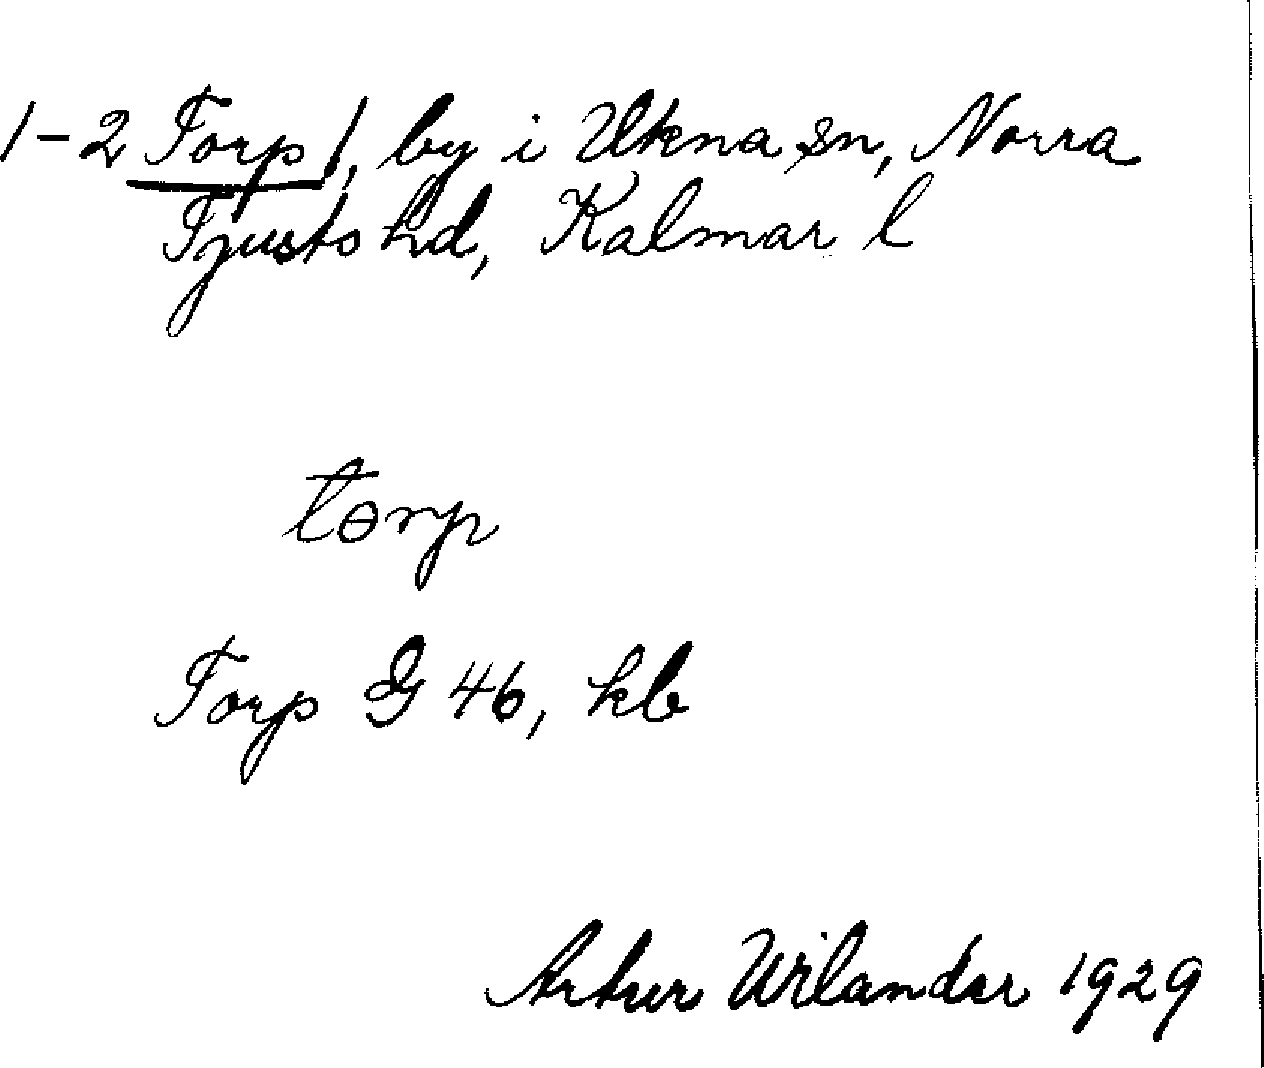 1-2 Torp 1, by i Ukna sn, Norra
Tjusts hd, Kalmar l
tɵrp
Torp G 46, kb
Artur Wilander 1929